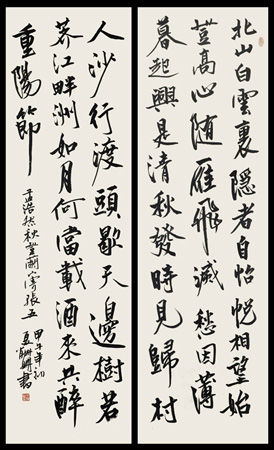 北山白雲裏隱者自怡悅相望始
登高心随雁飛滅愁因薄
暮起興是清秋發時見歸村
人沙行渡頭歇天邊樹若
薺江畔洲如月何當載酒來共醉
重陽節
孟浩然秋登蘭山寄張五
甲午年初
夏書